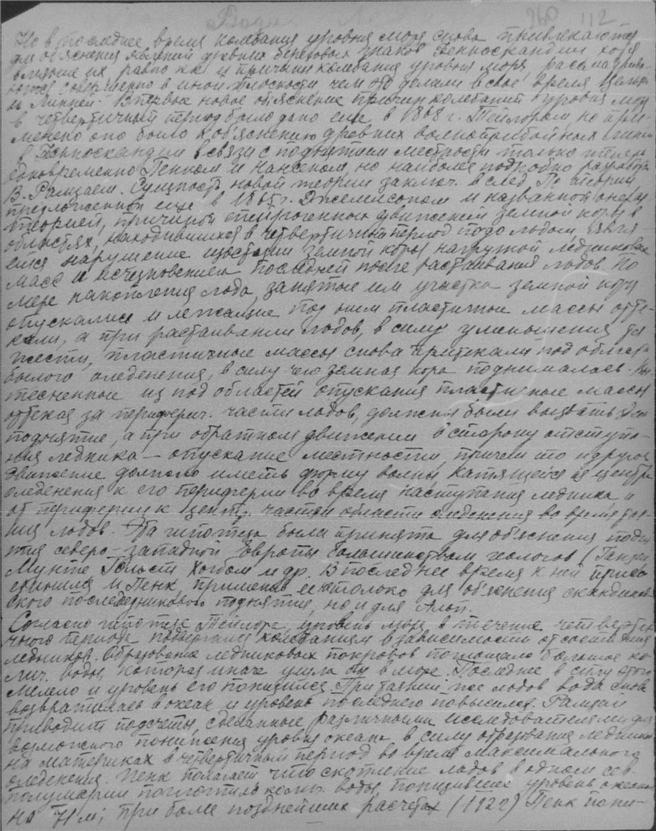 112
Но в последнее время колебания уровня моря снова привлекаются
для объяснения явлений древних береговых знаков Фенноскандии хотя
влияние их равно как и причины колебания уровня моря рассматрива-
ются совершенно в иной плоскости чем то делали в свое время Цельсий
и Линней. Впервые новое объяснение причин колебаний уровня моря
в четвертичный период было дано еще в 1868 г. Тейлором но при-
менено оно было к объяснению древних волноприбойных линий
в Фенноскандии в связи с поднятием местности только
одновременно Пенком и Нансеном, но наиболее подробно разработано
В. Рамзаем. Сущность новой теории заключ. в след. По теории
предложенной еще в 1865 г. Джемисоном и названной
теорией, причиной эпейрогенного движения земной коры в
областях, находившихся в четвертичный период подо льдом, явля-
ется нарушение изостазии земной коры нагрузкой ледниковых
масс и исчезновением последней после растаивания льдов. По
мере накопления льда, занятые им участки земной коры
опускались и лежащие под ними пластичные массы отте-
кали, а при растаивании льдов, в силу уменьшения тя-
жести, пластичные массы снова притекали под области
бывшего оледенения, в силу чего земная кора поднималась. Вы-
тесненные из под областей опускания пластичные массы
оттекая за периферич. части льдов, должны были вызвать
поднятие, а при обратном движении в сторону отступа-
ния ледника — опускание местности, причем то и другое
движение должно иметь форму волны, катящейся из центра
оледенения к его периферии во время наступания ледника и
от периферии к центр. частям области оледенения во время тая-
ния льдов. Эта гипотеза была принята для объяснения подня-
тия северо-западной Европы большинством геологов (
Мунте Хольст Хогбом и др. В последнее время к ней присо-
единился и Пенк, применив ее не только для объяснения скандинав-
ского последникового поднятия, но и для Альп.
Согласно гипотезе Тейлора, уровень моря в течение четвертич-
ного периода подвергался колебаниям в зависимости от состояния
ледников. Образование ледниковых покровов поглощало большое ко-
лич. воды, которая иначе ушла бы в море. Последнее в силу этого
мелело и уровень его понизился. При таянии же льдов вода снова
возвращалась в океан и уровень последнего повысился. Рамзай
приводит подсчеты, сделанные различными исследователями для
возможного понижения уровня океана в силу образования ледников
на материках в четвертичном период во время максимального
оледенения. Пенк полагает что скопление льдов в одном сев.
полушарии поглотило колич. воды, понизившее уровень океана
на м; при более позднейших расчетах (1922) Пенк пони-